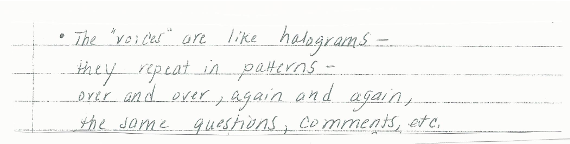 • The "voices" are like holograms –
they repeat in patterns –
over and over, again and again,
the same questions, comments, etc.